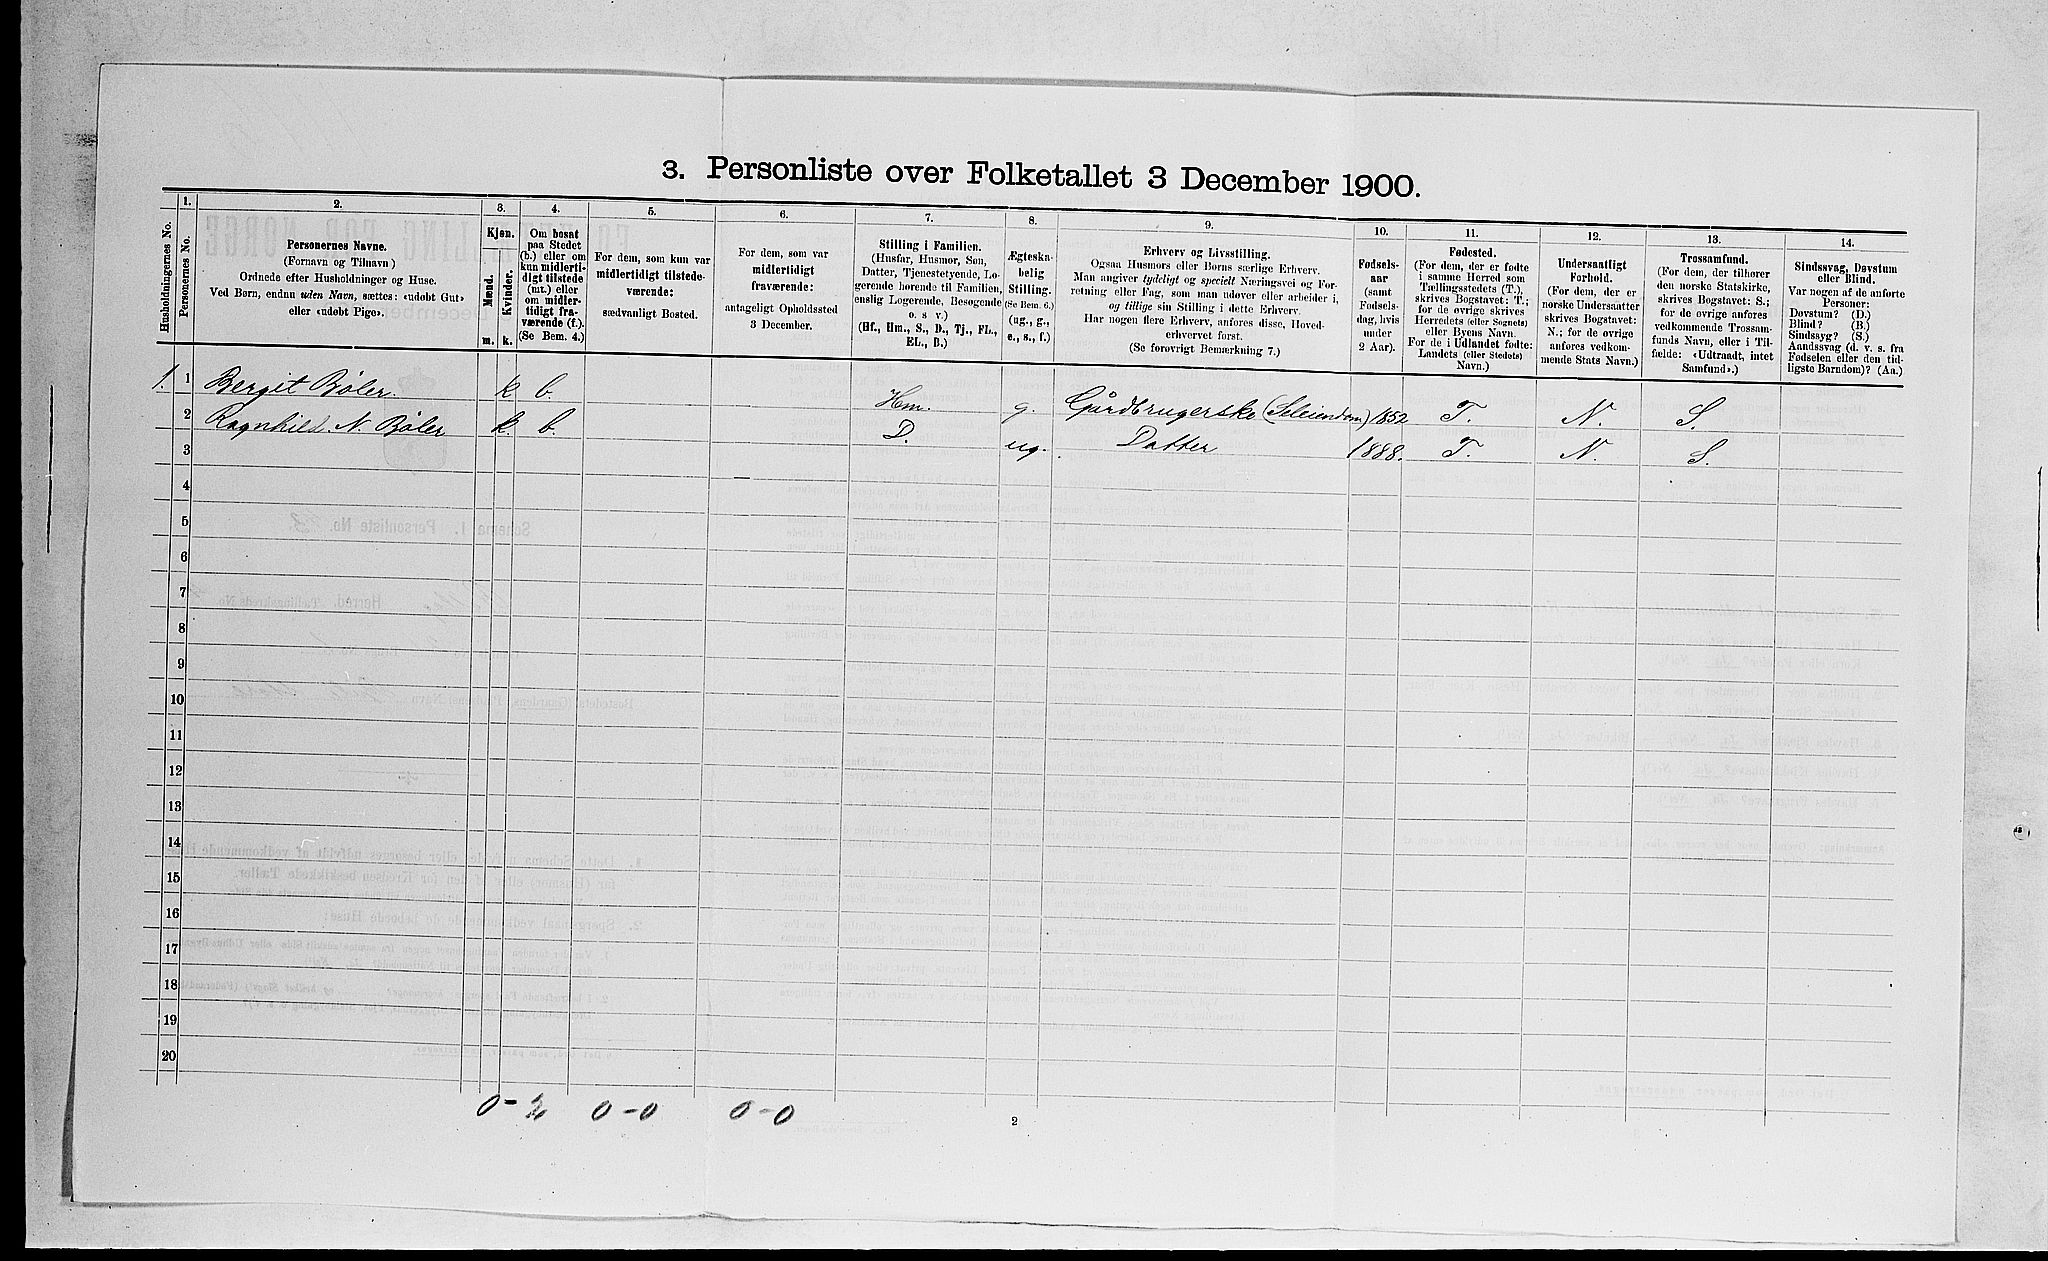 3. Personliste over Folketallet 3 December 1900.
Husholdningernes No.
1.
Personernes No.
2.
Personernes Navne.
(Fornavn og Tilnavn)
Ordnede efter Husholdninger og Huse.
Ved Børn, endnu uden Navn, sættes: «udøbt Gut»
eller «udøbt Pige».
3.
Kjøn.
Mænd.
Kvinder.
m. k.
4.
Om bosat
paa Stedet
(b.) eller om
kun midlerti-
digt tilstede
(mt.) eller
om midler-
tidigt fra-
værende (f.).
(Se Bem. 4.)
5.
For dem, som kun var
midlertidigt tilstede-
værende:
sædvanligt Bosted.
6.
For dem, som var
midlertidigt
fraværende:
antageligt Opholdssted
3 December.
7.
Stilling i Familien.
(Husfar, Husmor, Søn,
Datter, Tjenestetyende, Lo-
gerende hørende til Familien,
enslig Logerende, Besøgende
o. s v.)
(Hf., Hm., S., D., Tj., FL.,
EL., B.)
8.
Ægteska-
belig
Stilling.
(Se Bem. 6.)
(ug., g.,
e., s., f.)
9.
Erhverv og Livsstilling.
Ogsaa Husmors eller Børns særlige Erhverv.
Man angiver tydeligt og specielt Næringsvei og For-
retning eller Fag, som man udøver eller arbeider i,
og tillige sin Stilling i dette Erhverv.
Har nogen flere Erhverv, anføres disse, Hoved-
erhvervet først.
(Se forøvrigt Bemærkning 7.)
10.
Fødsels-
aar
(samt
Fødsels-
dag, hvis
under
2 Aar).
11.
Fødested.
(For dem, der er fødte
i samme Herred som
Tællingsstedets (T.),
skrives Bogstavet: T.;
for de øvrige skrives
Herredets (eller Sognets)
eller Byens Navn.
For de i Udlandet fødte:
Landets (eller Stedets)
Navn.)
12.
Undersaatligt
Forhold.
(For dem, der er
norske Undersaatter
skrives Bogstavet:
N.; for de øvrige
anføres vedkom-
mende Stats Navn.)
13.
Trossamfund.
(For dem, der tilhører
den norske Statskirke,
skrives Bogstavet: S.;
for de øvrige anføres
vedkommende Trossam-
funds Navn, eller i Til-
fælde: «Udtraadt, intet
Samfund».)
14.
Sindssvag, Døvstum
eller Blind.
Var nogen af de anførte
Personer:
Døvstum? (D.)
Blind? (B.)
Sindssyg? (S.)
Aandssvag (d. v. s. fra
Fødselen eller den tid-
ligste Barndom)? (Aa.)
1. 1 Bergit Bøler. k b. Hm. g. Gårdbrugerske (Seleiendom) 1852 T. N. S.
2 Ragnhild. N. Bøler k. b. D. ug. Datter 1888. T. N. S.
3
4
5
6
7
8
9
10
11
12
13
14
15
16
17
18
19
20
0-2 0-0 0-0
2